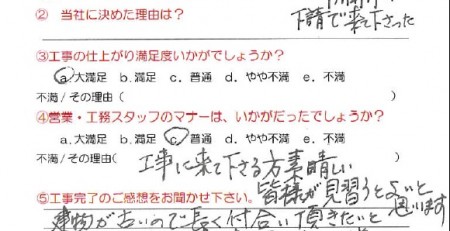 ② 当社に決めた理由は？
下請で来て下さった
③工事の仕上がり満足度いかがでしょうか？
a.大満足 b.満足 c.普通 d.やや不満 e.不満
不満/その理由(
④営業・工務スタッフのマナーは、いかがだったでしょうか？
a.大満足 b.満足 c.普通 d.やや不満 e.不満
不満/その理由( 工事に来て下さる方素晴しい
皆様が見習うとよいと思います
⑤工事完了のご感想をお聞かせ下さい。
建物が古いので長く付合い頂きたいと